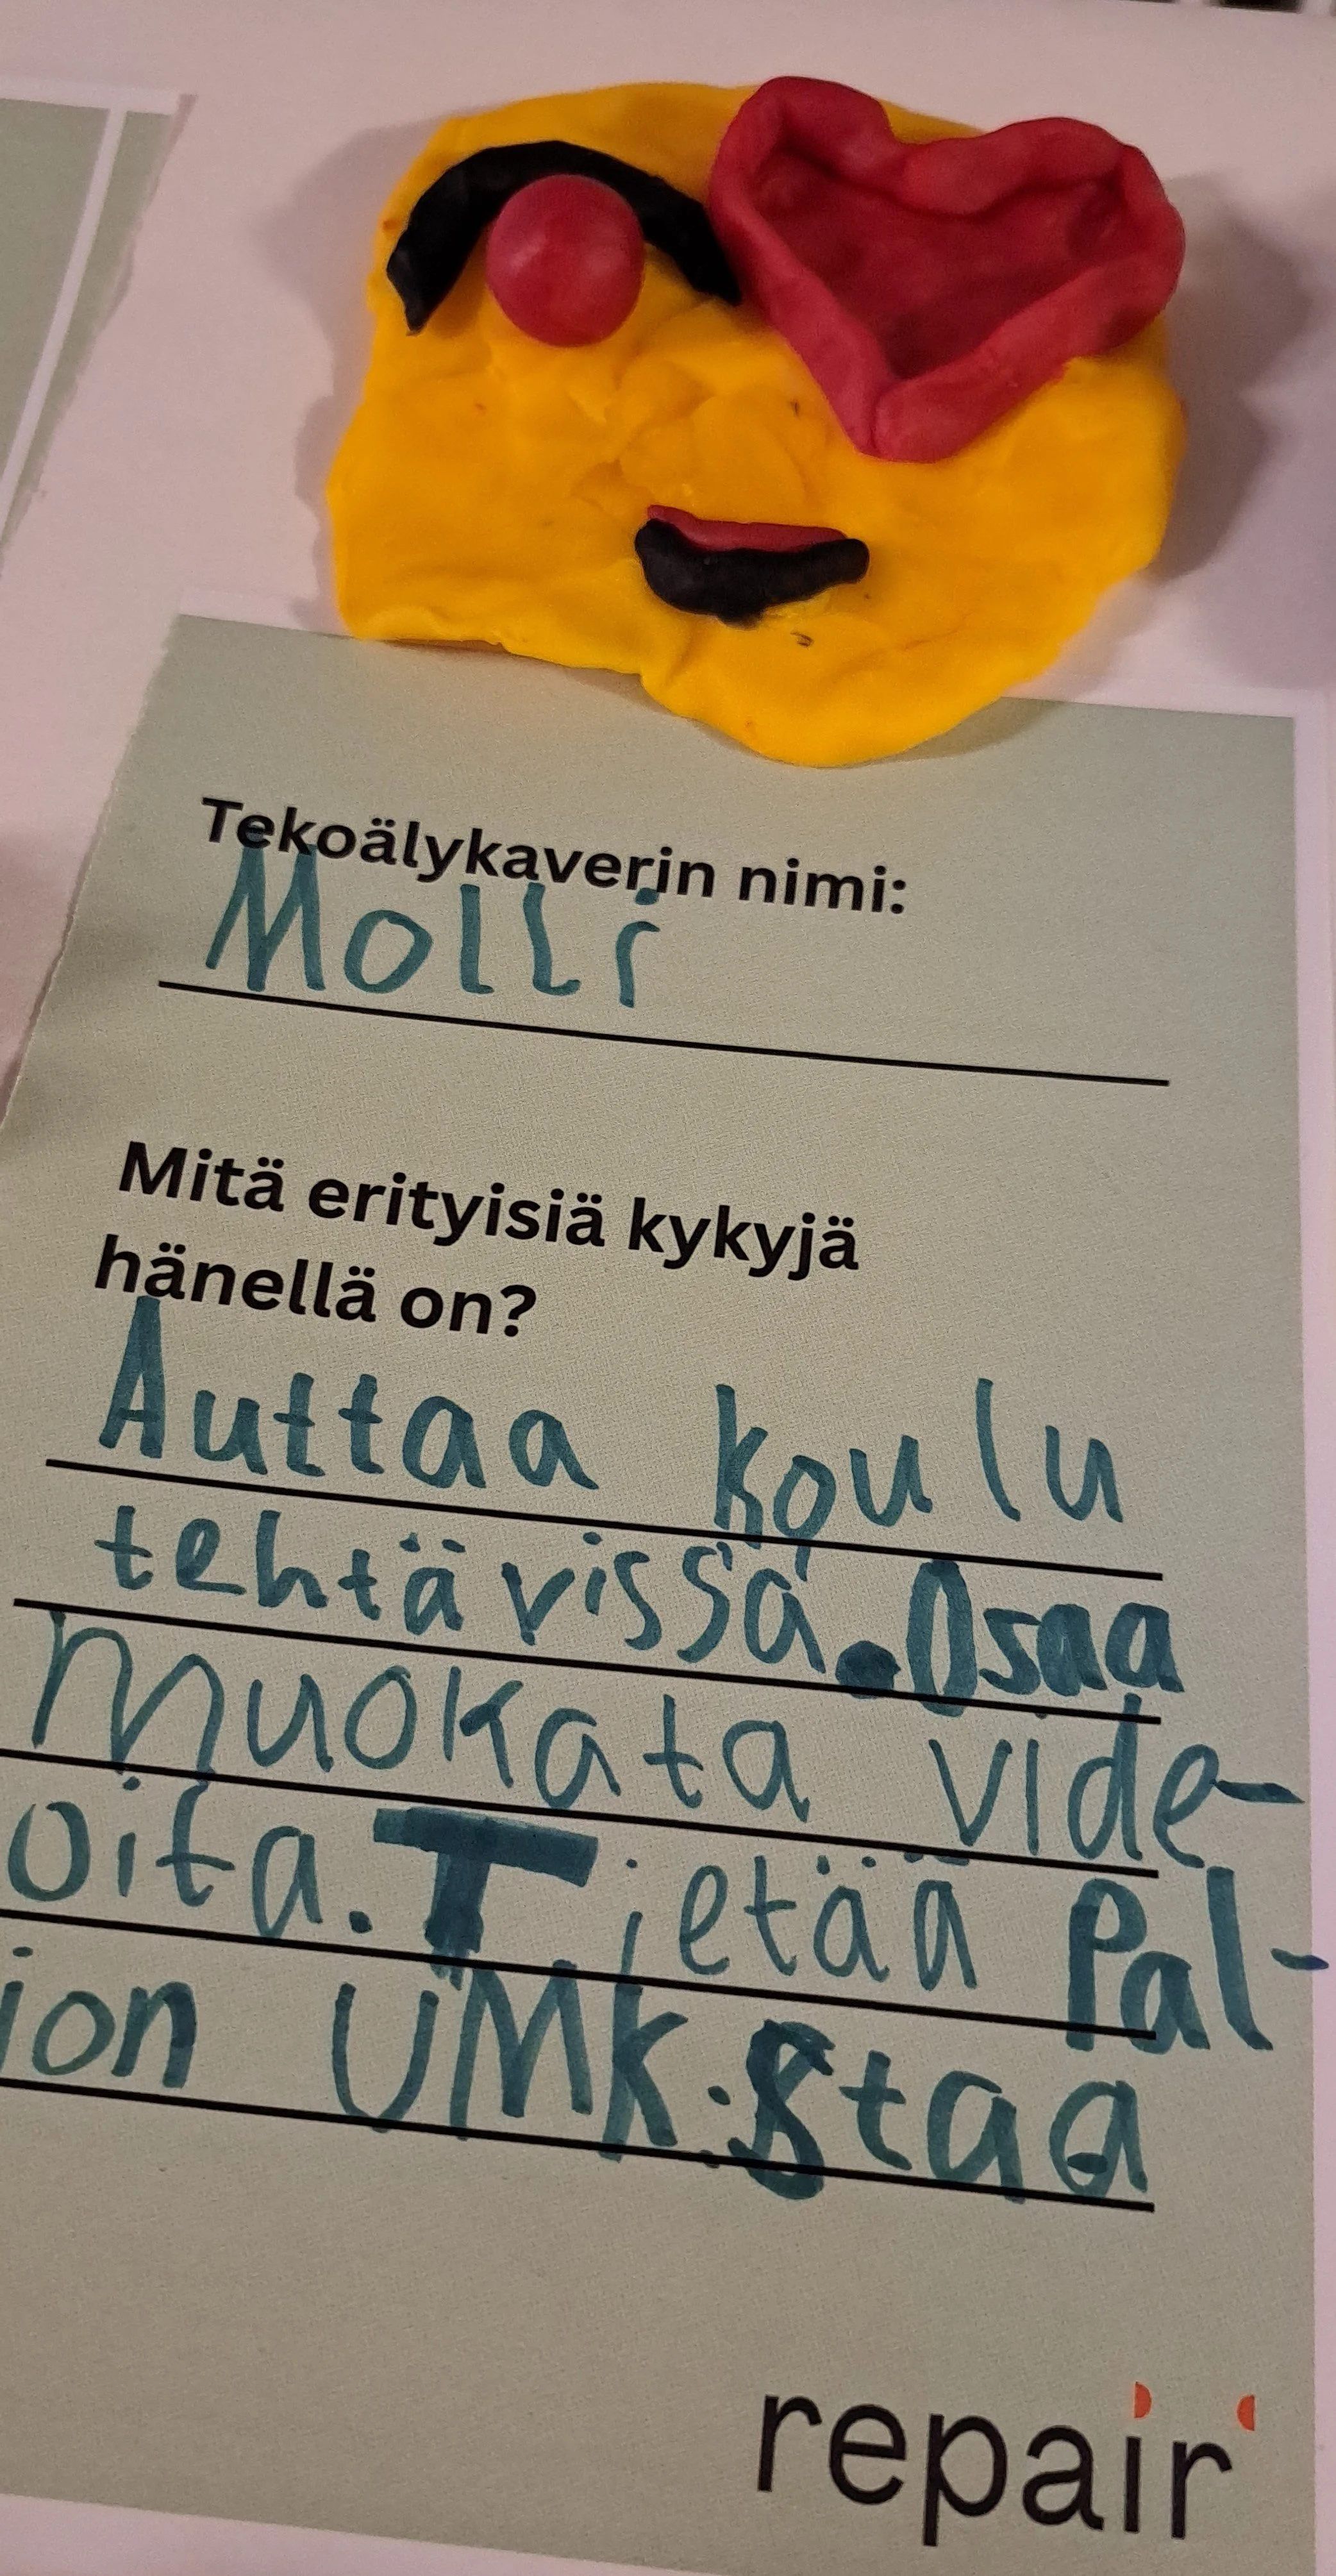 Tekoälykaverin nimi:
Molli
Mitä erityisiä kykyjä
hänellä on?
Auttaa koulu
tehtävissä. Osaa
muokata vide-
oita. Tietää Pal-
jon UMK:staa
repair